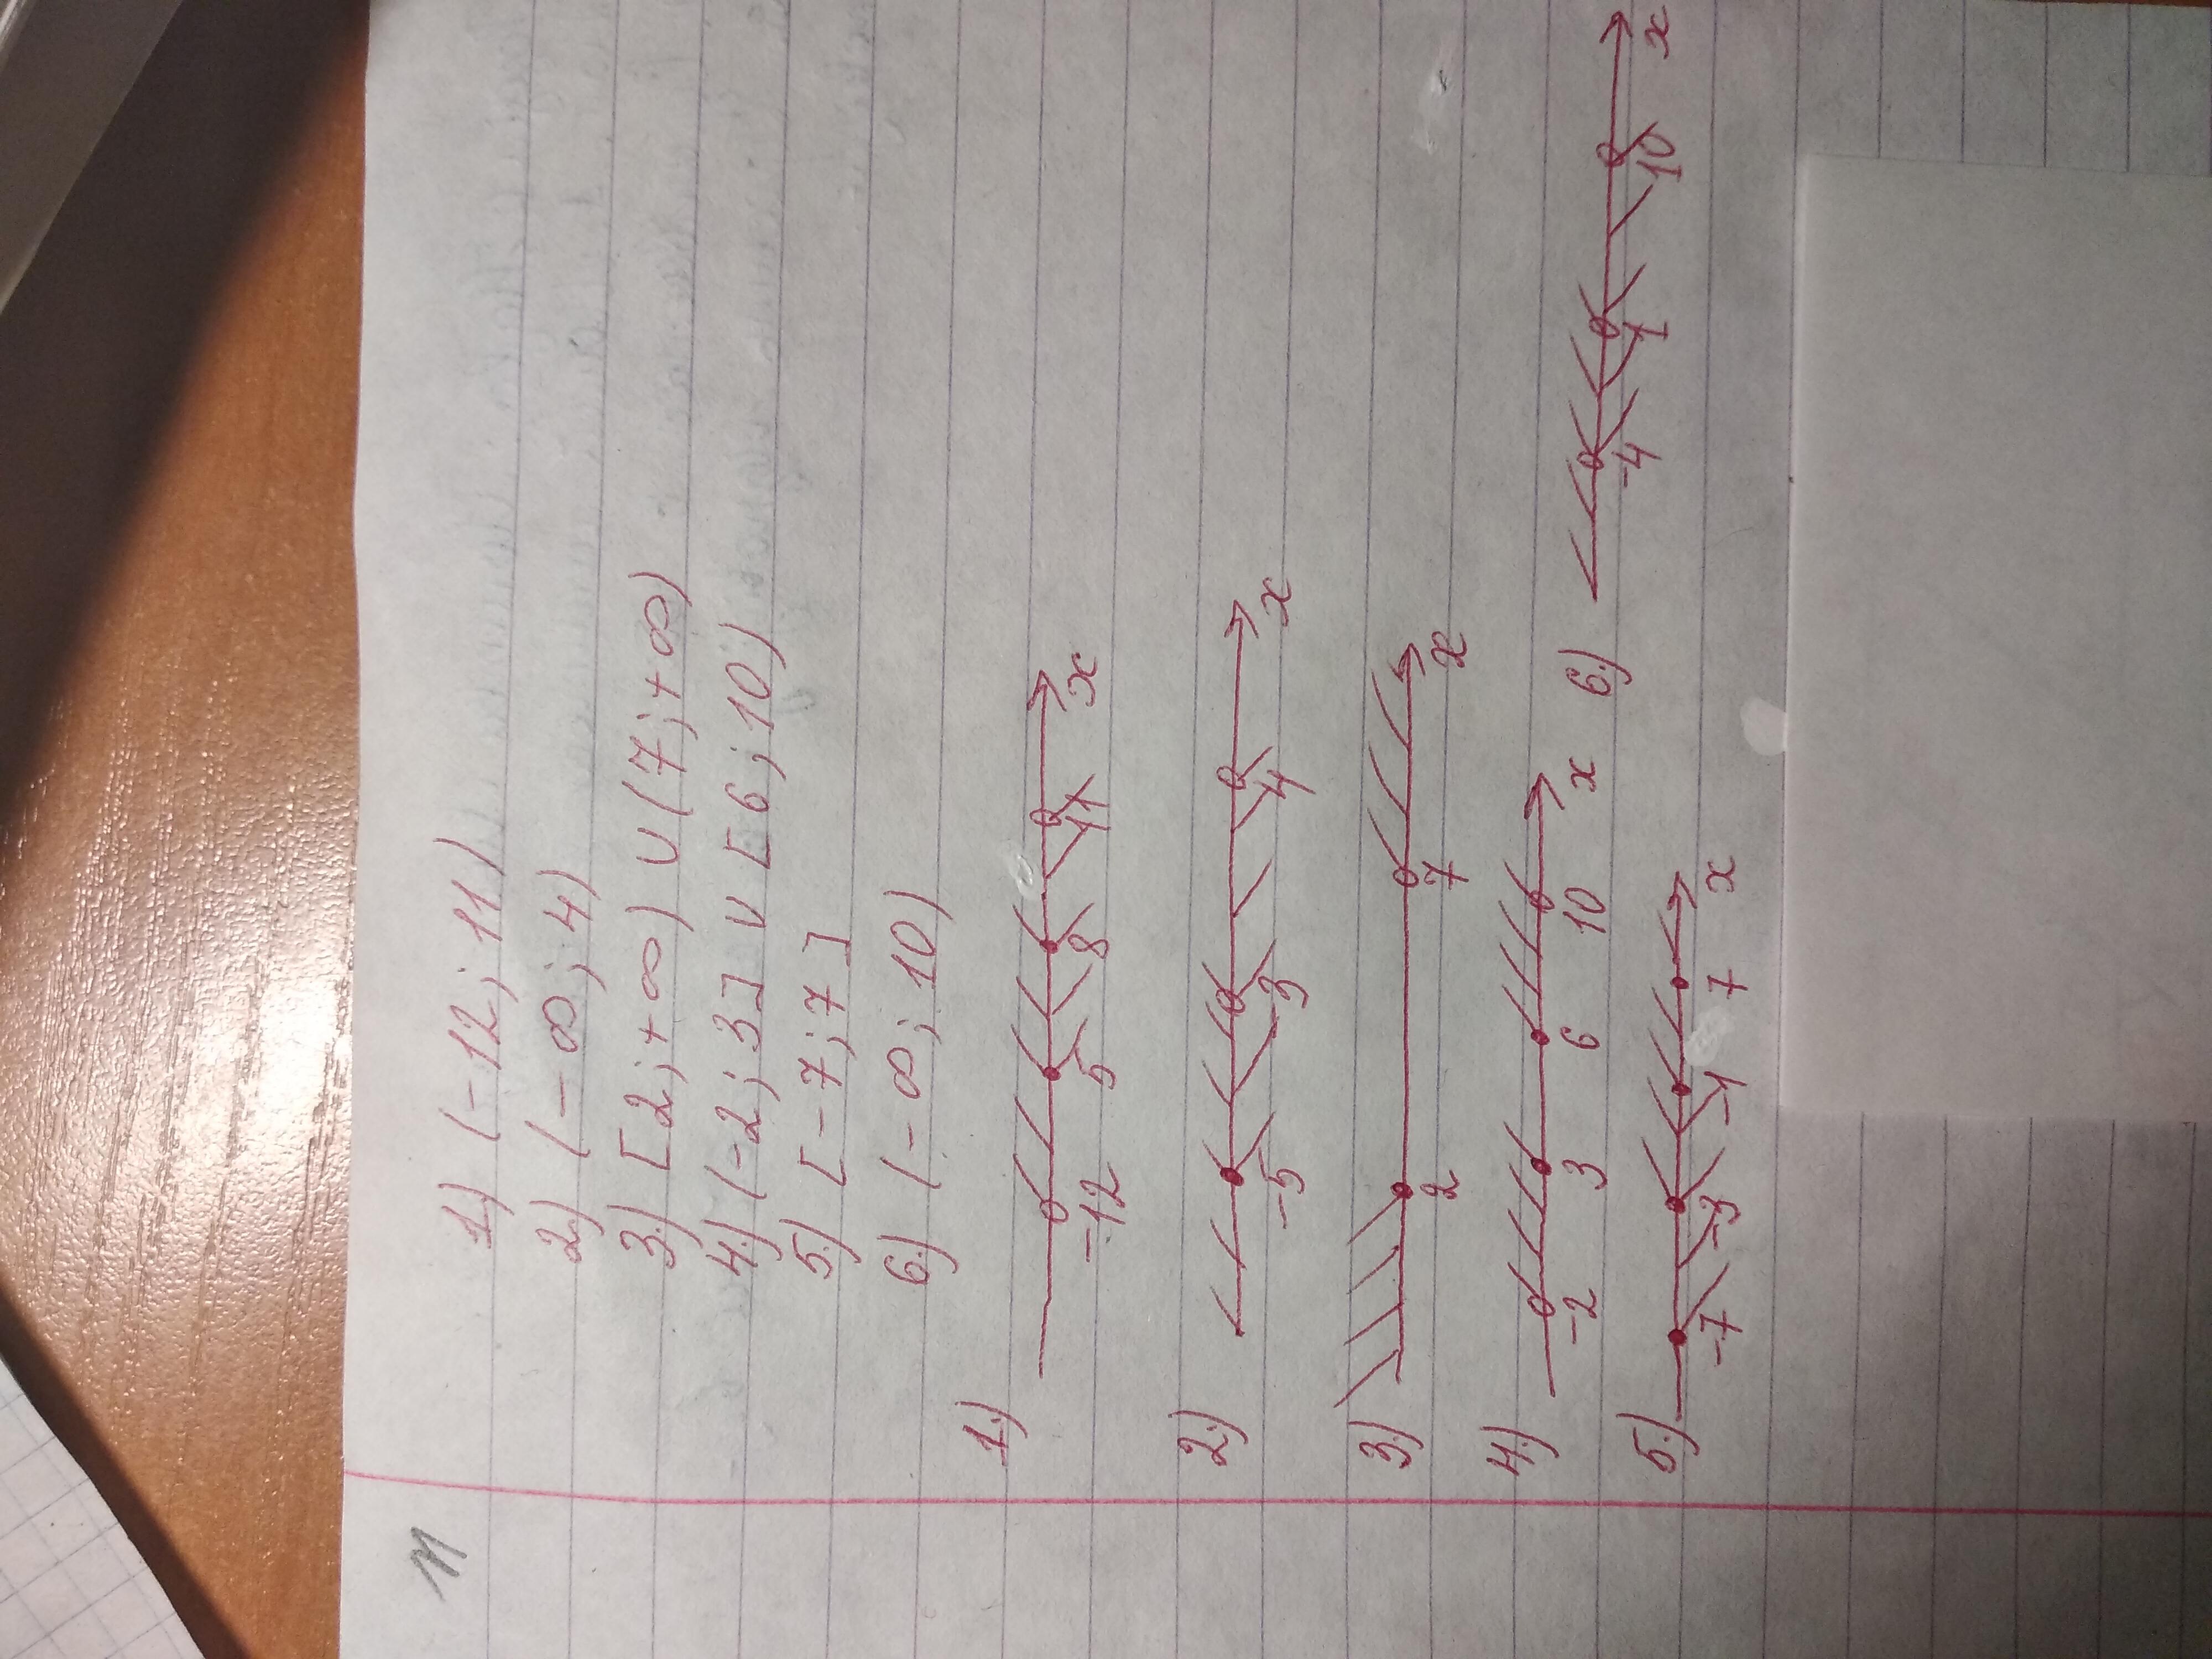 11
1.) (-12; 11)
2.) (-∞; 4)
3.) [2; +∞) ∪ (7; +∞)
4.) (-2; 3] ∪ [6; 10)
5.) [-7; 7]
6.) (-∞; 10)
1.) -12 5 8 11 x
2.) -5 3 4 x
3.) 2 7 x
4.) -2 3 6 10 x
5.) -7 -3 -1 7 x
6.) -4 1 10 x